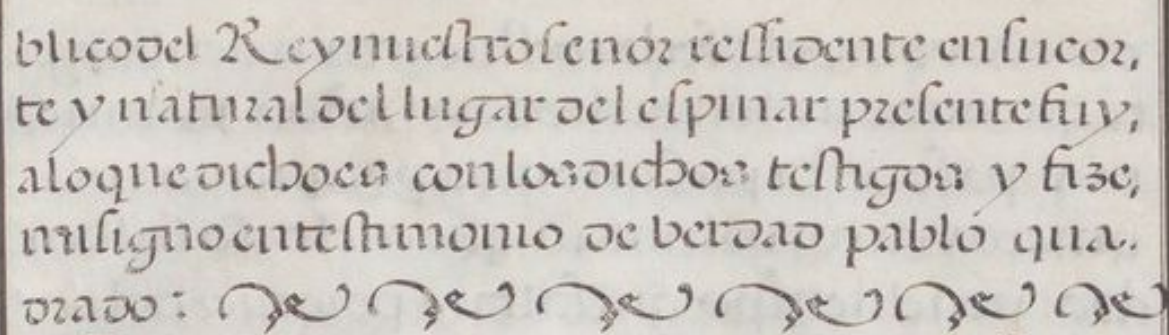 blico del Rey nuestro señor ressidente en su cor,
te y natural del lugar del espinar presente fuy,
a lo que dicho es con los dichos testigos y fize,
mi signo en testimonio de berdad pablo qua.
drado: